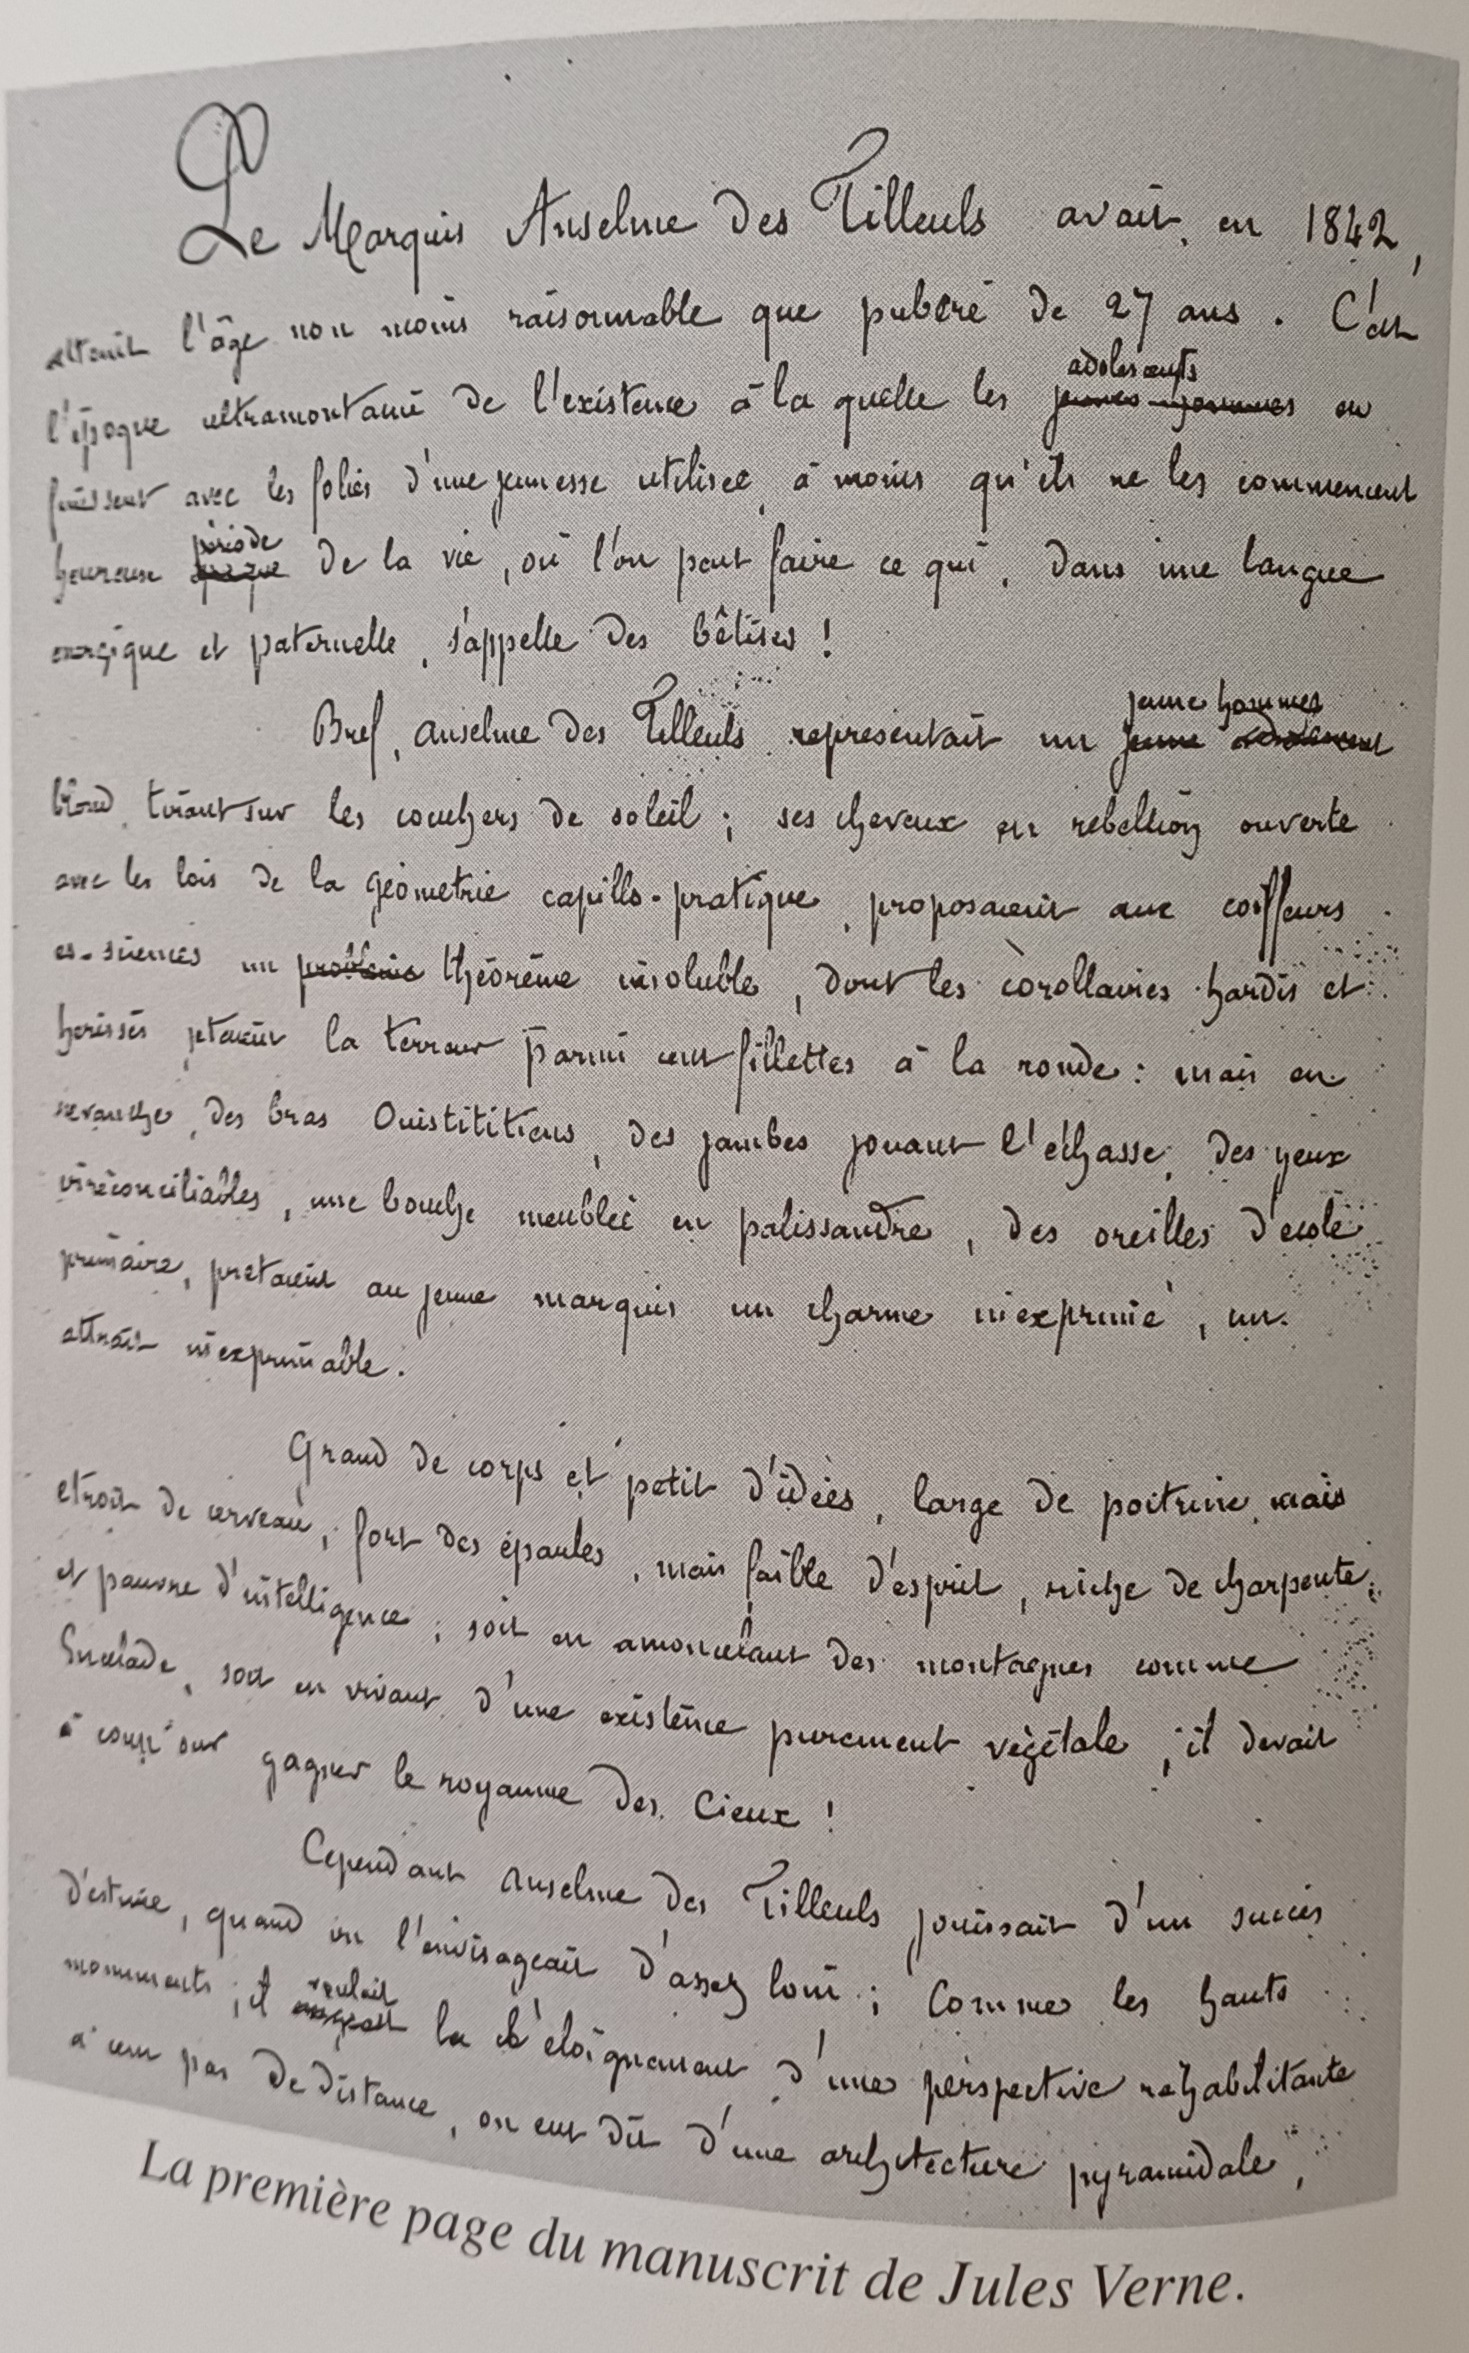 Le Marquis Anselme des Tilleuls avait, en 1842,
atteint l'âge non moins raisonnable que pubère de 27 ans. C'est
l'époque ultramontaine de l'existence à la quelle les adolescents jeunes hommes en
finissent avec les folies d'une jeunesse utilisée, à moins qu'ils ne les commencent
heureuse période de la vie, où l'on peut faire ce qui, dans une langue
energique et paternelle, s'appelle des bêtises !
Bref, Anselme des Tilleuls représentait un jeune homme jeune adolescent
blond tirant sur les couchers de soleil ; ses cheveux en rebellion ouverte
avec les lois de la géometrie capillo-pratique, proposaient aux coiffeurs
es-sciences un problème théorème insoluble, dont les corollaires hardis et
herissés jetaient la terreur parmi cent fillettes à la ronde : mais en
revanche, des bras Ouistititiens, des jambes jouant l'échasse, des yeux
irréconciliables, une bouche meublée en palissandre, des oreilles d'école
primaire, pretaient au jeune marquis un charme inexprimé, un
attrait inexprimable.
Grand de corps et petit d'idées, large de poitrine, mais
etroit de cerveau, fort des épaules, mais faible d'esprit, riche de charpente,
et pauvre d'intelligence ; soit en amoncelant des montagnes comme
Encelade, soit en vivant d'une existence purement végétale, il devait
à coup sur gagner le royaume des Cieux !
Cependant Anselme des Tilleuls jouissait d'un succès
d'estime, quand on l'envisageait d'assez loin ; Comme les hauts
monuments ; il voulait la l'éloignement d'une perspective rehabilitante
à cent pas de distance, on eut dit d'une architecture pyramidale,
La première page du manuscrit de Jules Verne.